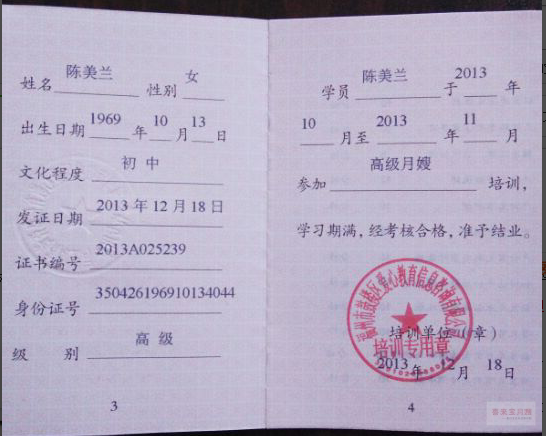 姓名 陈美兰 性别 女
出生日期 1969 年 10 月 13 日
文化程度 初中
发证日期 2013 年 12 月 18 日
证书编号 2013A025239
身份证号 350426196910134044
级别 高级
3
学员 陈美兰 于 2013 年
10 月至 2013 年 11 月
参加 高级月嫂 培训,
学习期满,经考核合格,准予结业。
福州市鼓楼区爱心教育信息咨询有限公司
培训单位(章)
培训专用章
2013 年 12 月 18 日
4